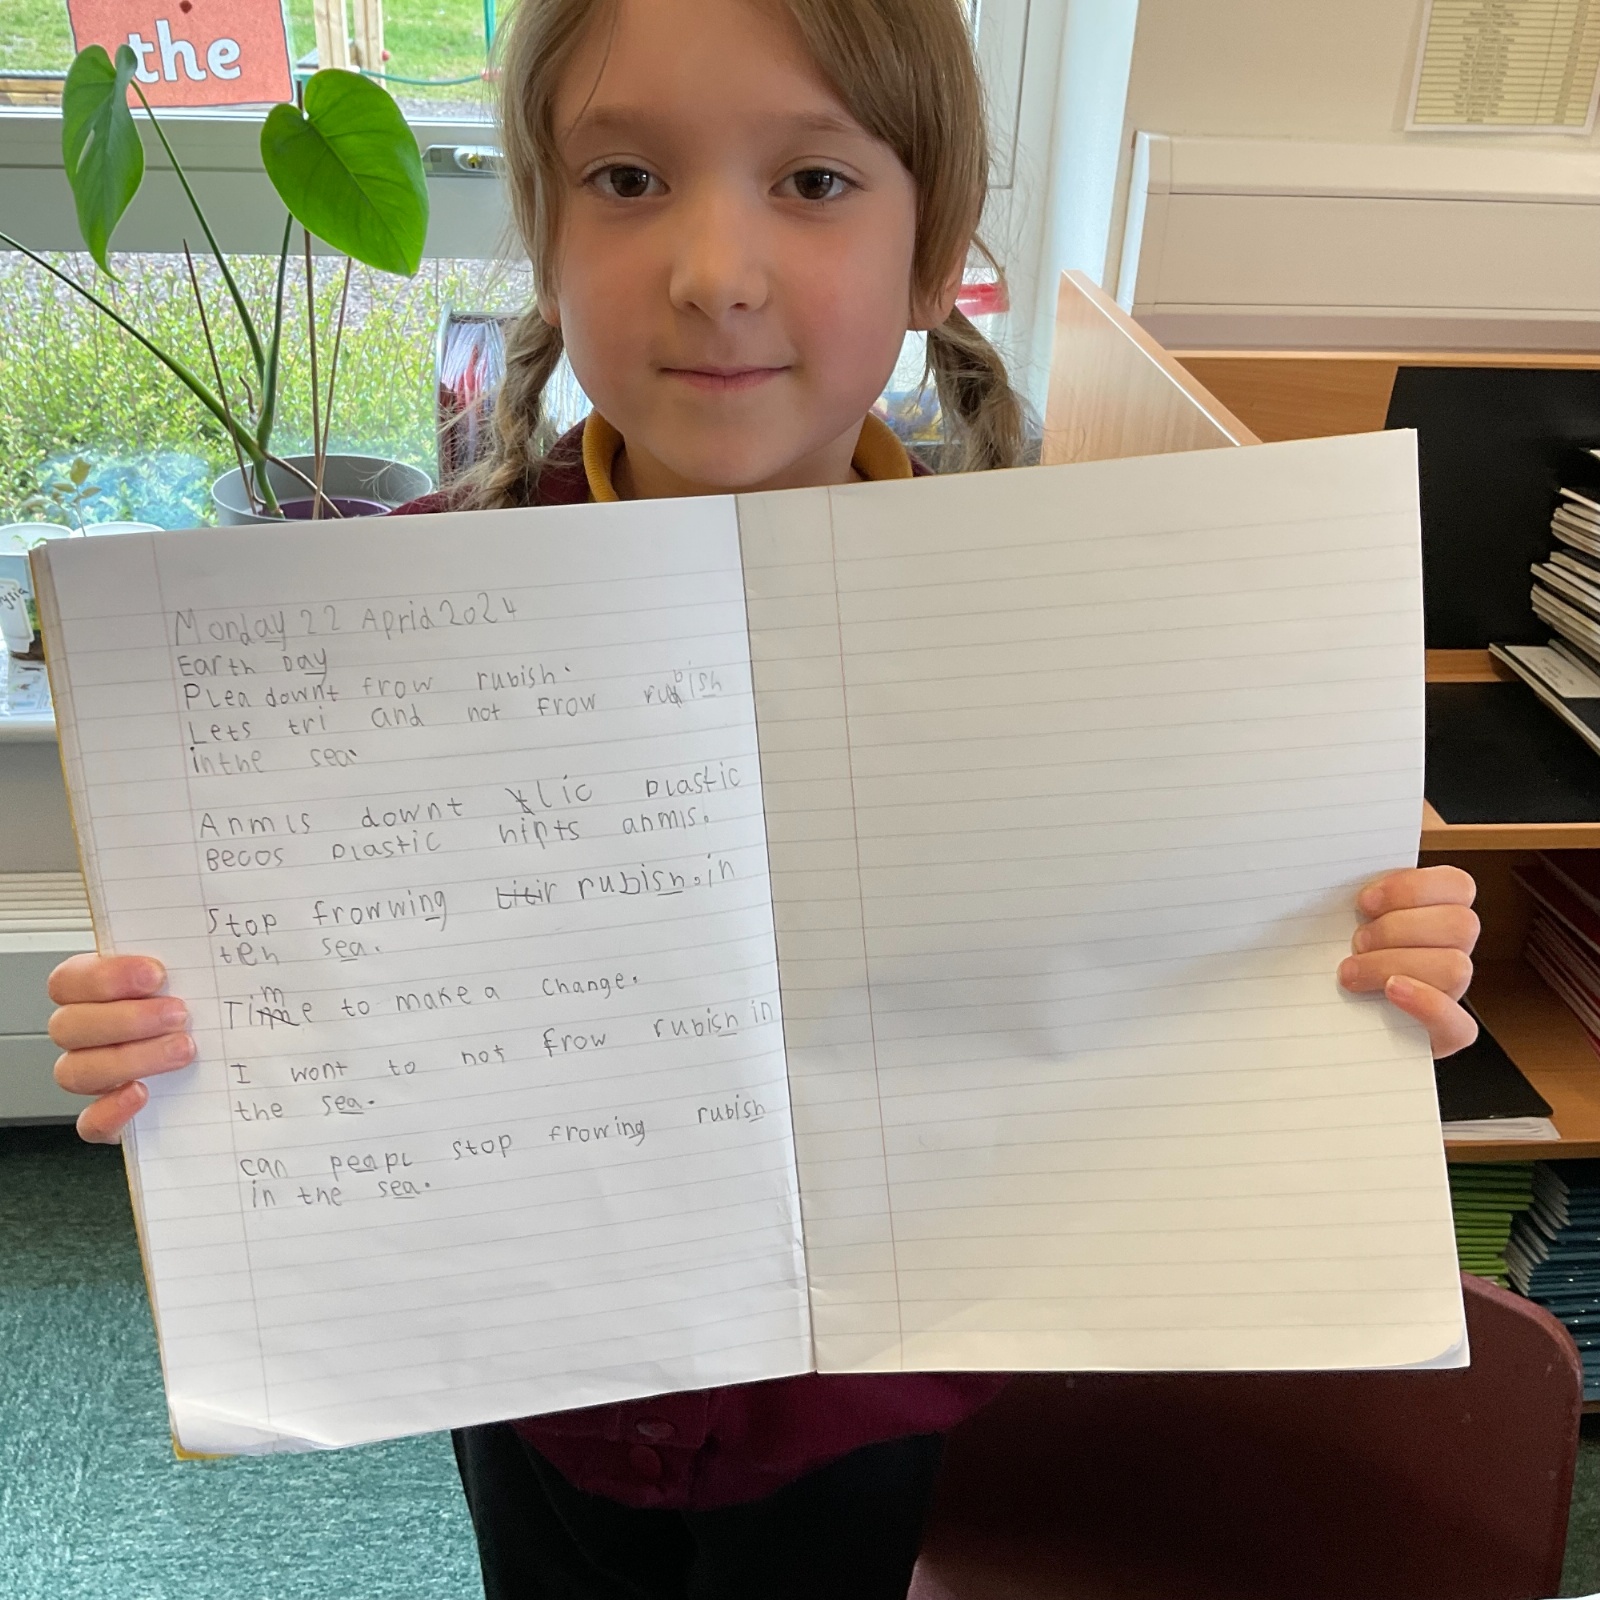 the
Monday 22 Aprid 2024
Earth Day
Plea downt frow rubish.
Lets tri and not frow rubish
in the sea.
Anmls downt lic plastic
Becos plastic hirts anmls.
Stop frowwing rubish. in
teh sea.
Time to make a change.
I wont to not frow rubish in
the sea.
can peapl stop frowing rubish
in the sea.